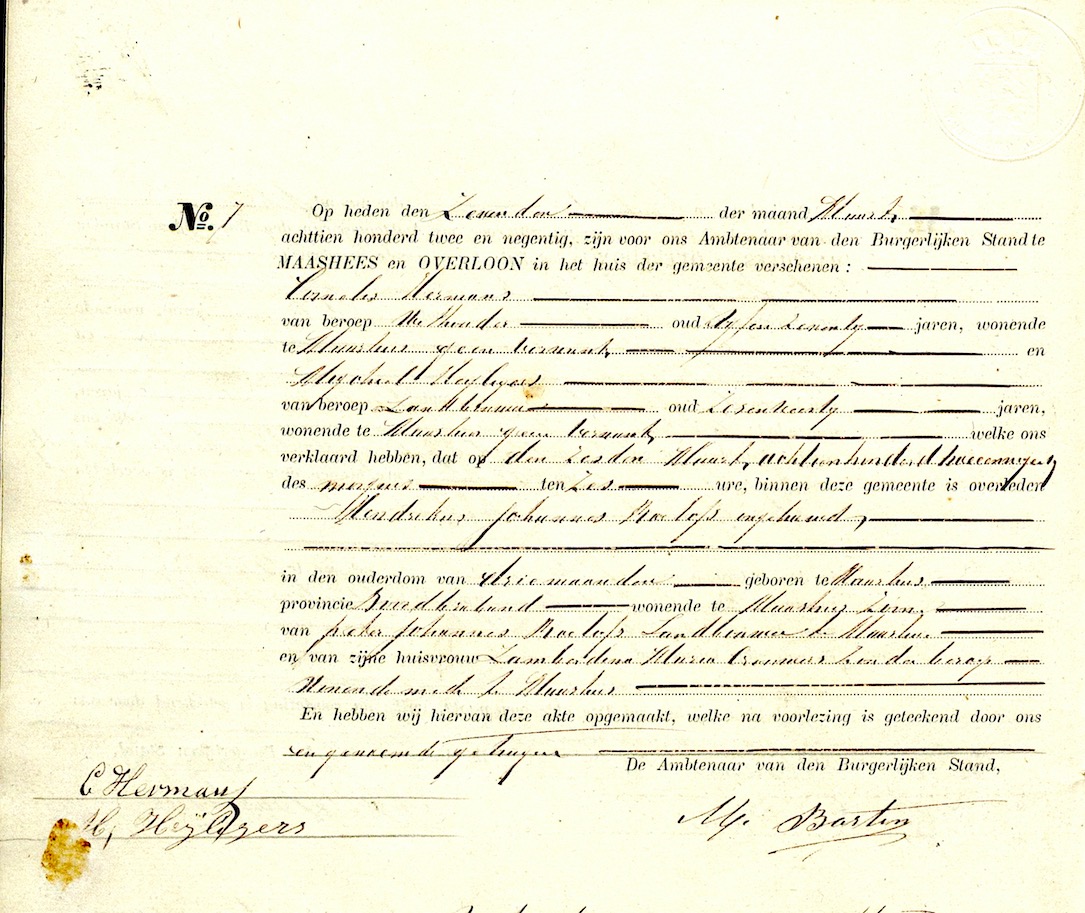 No. 7 Op heden den Zevenden der maand Maart,
achttien honderd twee en negentig, zijn voor ons Ambtenaar van den Burgerlijken Stand te
MAASHEES en OVERLOON in het huis der gemeente verschenen:
Cornelis Hermans
van beroep Wethouder oud zestig jaren, wonende
te Maashees geen bervant, en
van beroep Landbouwer oud jaren,
wonende te Maashees geen welke ons
verklaard hebben, dat op den zesden Maart, achttienhonderd tweeennegentig
des morgens ten Zes ure, binnen deze gemeente is overleden
Hendrikus Johannes Roelofs ongehuwd,
in den ouderdom van drie maanden geboren te Maashees
provincie Noordbraband wonende te Maashees Zoon,
van Peter Johannes Roelofs Landbouwer te Maashees
en van zijne huisvrouw Lamberdina Maria Zonder beroep
Wonende mede te Maashees
En hebben wij hiervan deze akte opgemaakt, welke na voorlezing is geteekend door ons
en genoemde getuigen
De Ambtenaar van den Burgerlijken Stand,
C Hermans
H, Heijligers
M. Basten